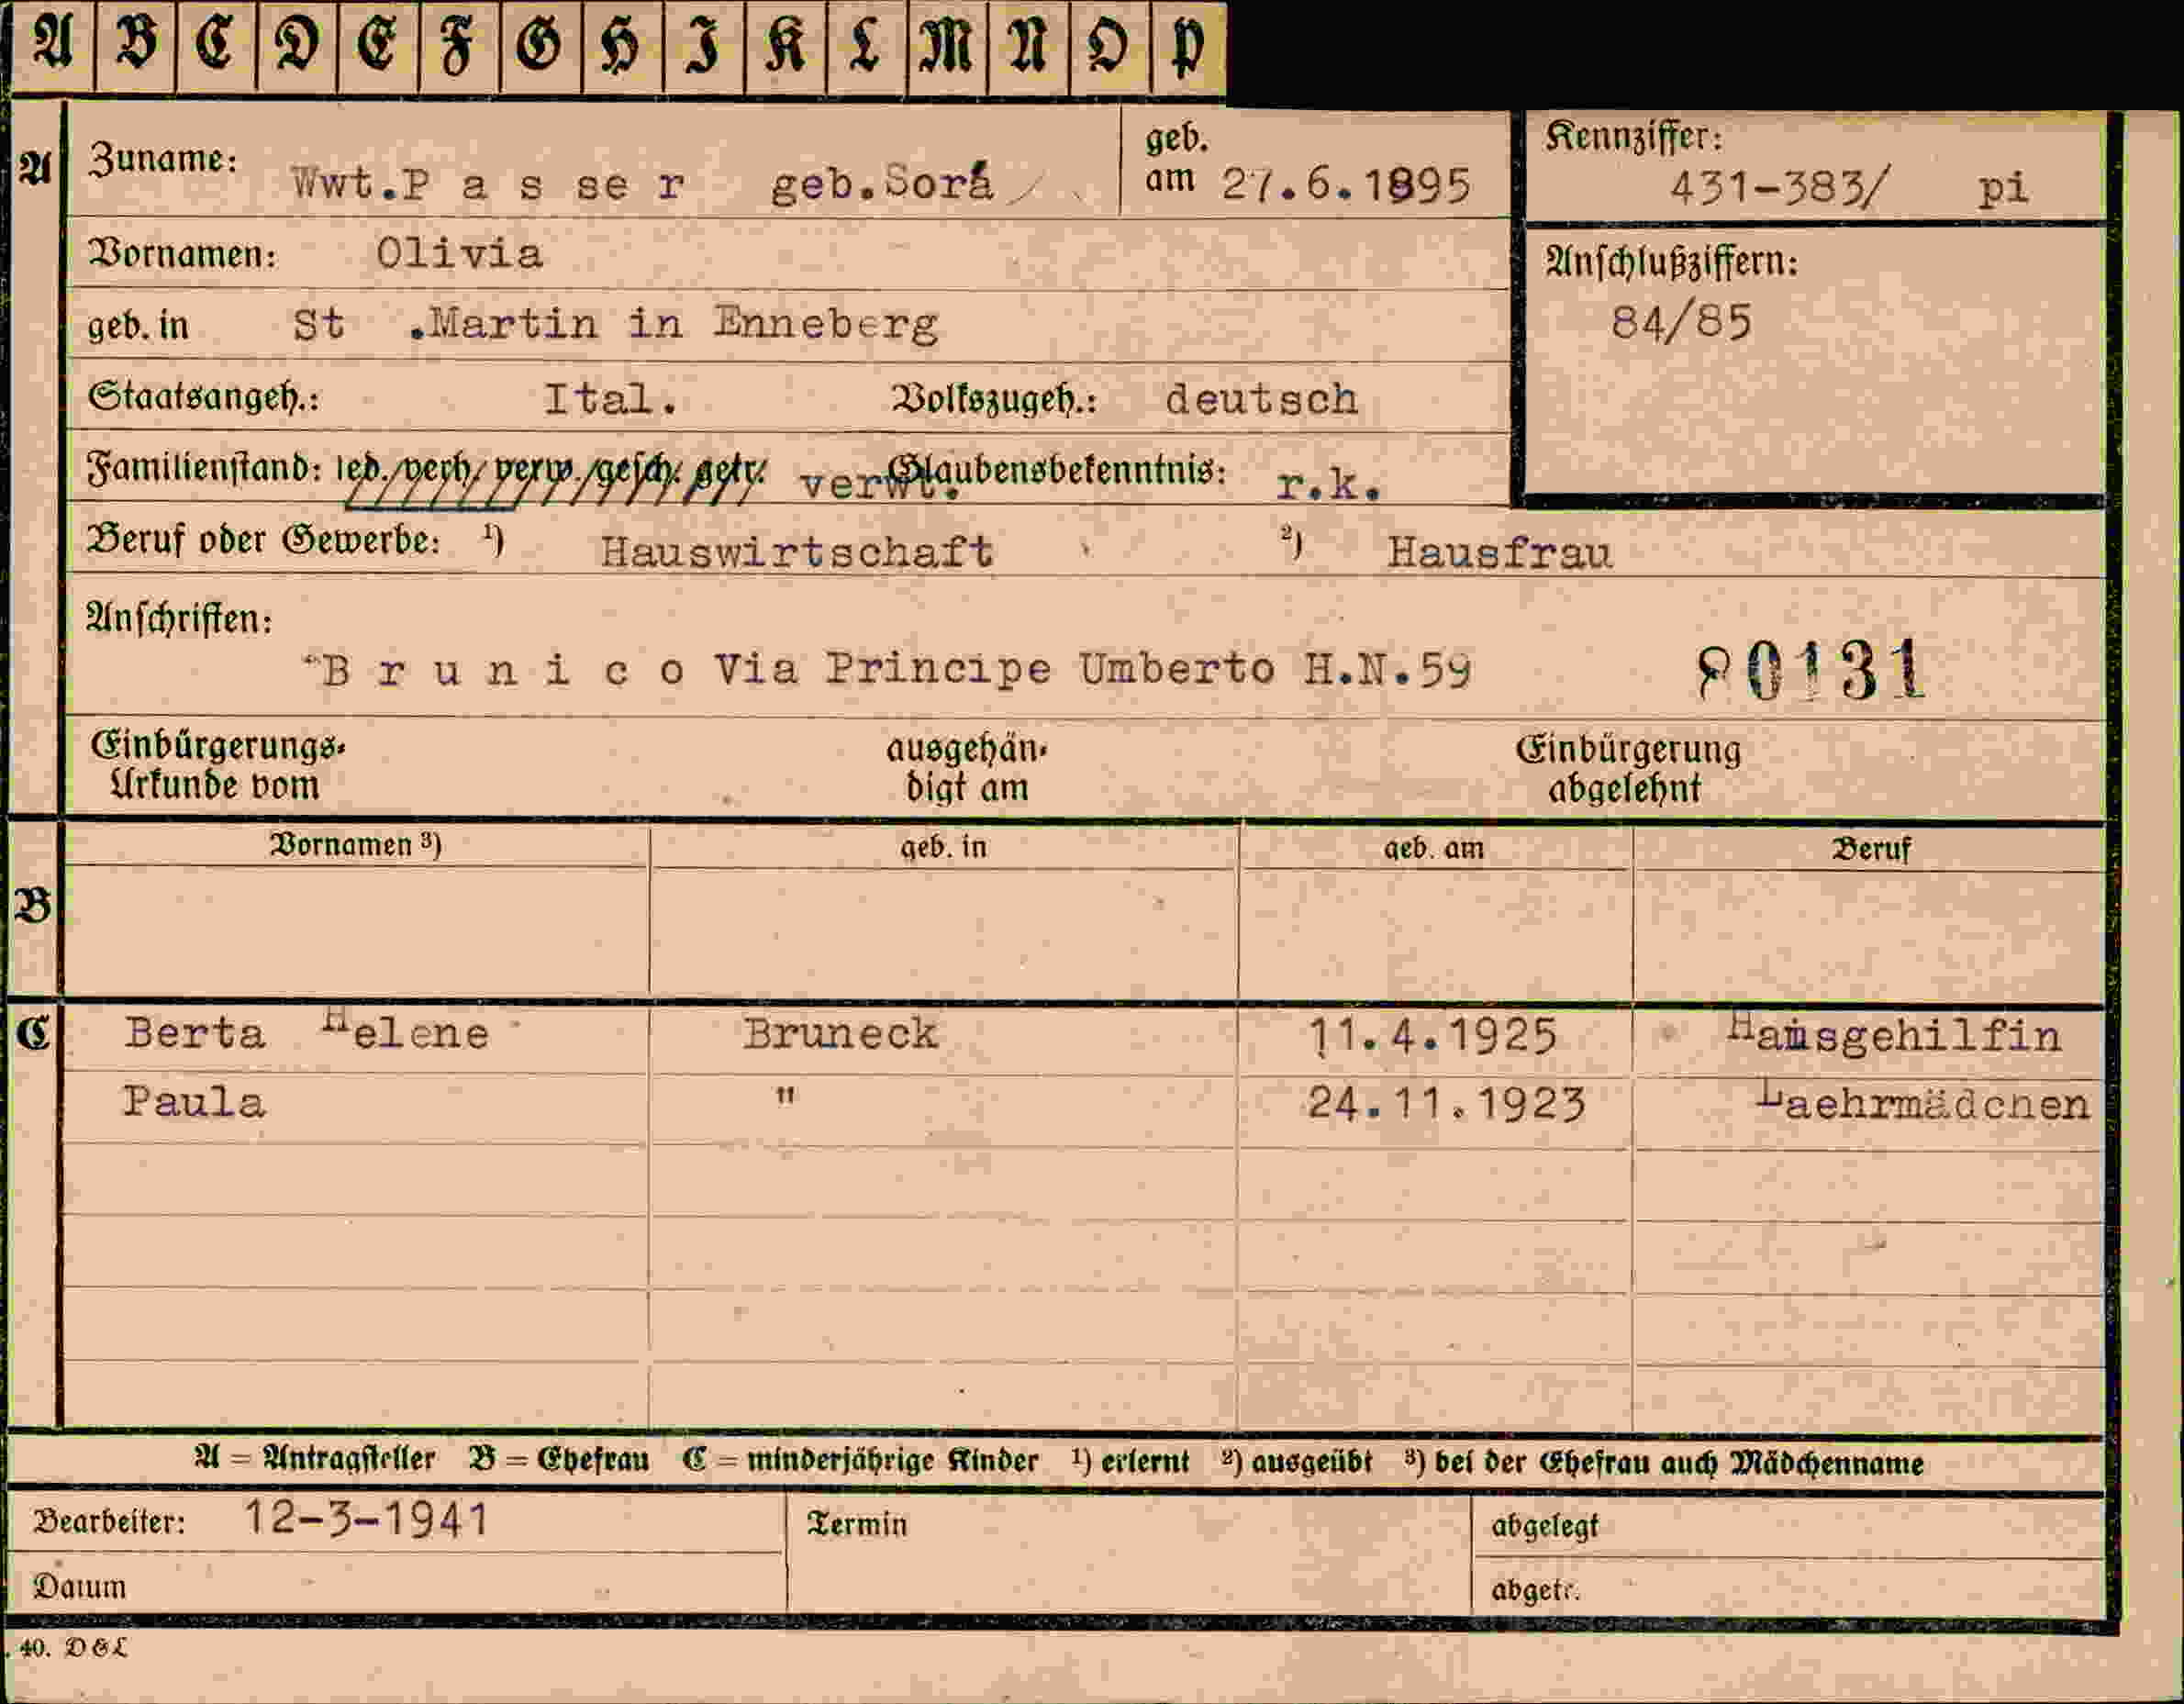 A B C D E F G H I K L M N O P
A Zuname: Wwt.P a s se r geb.Sorá geb. am 27.6.1895
Kennziffer: 431-383/ pi
Vornamen: Olivia
Anschlußziffern:
84/85
geb. in St .Martin in Enneberg
Staatsangeh.: Ital. Volkszugeh.: deutsch
Familienstand: led./verh./verw./gesch./getr. verwt. Glaubensbekenntnis: r.k.
Beruf oder Gewerbe: ¹) Hauswirtschaft ²) Hausfrau
Anschriften:
B r u n i c o Via Principe Umberto H.N.59 80131
Einbürgerungs- ausgehän- Einbürgerung
Urkunde vom digt am abgelehnt
Vornamen ³) geb. in geb. am Beruf
B
C Berta Helene Bruneck 11.4.1925 Hausgehilfin
Paula " 24.11.1923 Laehrmädchen
A = Antragsteller B = Ehefrau C = minderjährige Kinder ¹) erlernt ²) ausgeübt ³) bei der Ehefrau auch Mädchenname
Bearbeiter: 12-3-1941 Termin abgelegt
Datum abgetr.
40. DGL